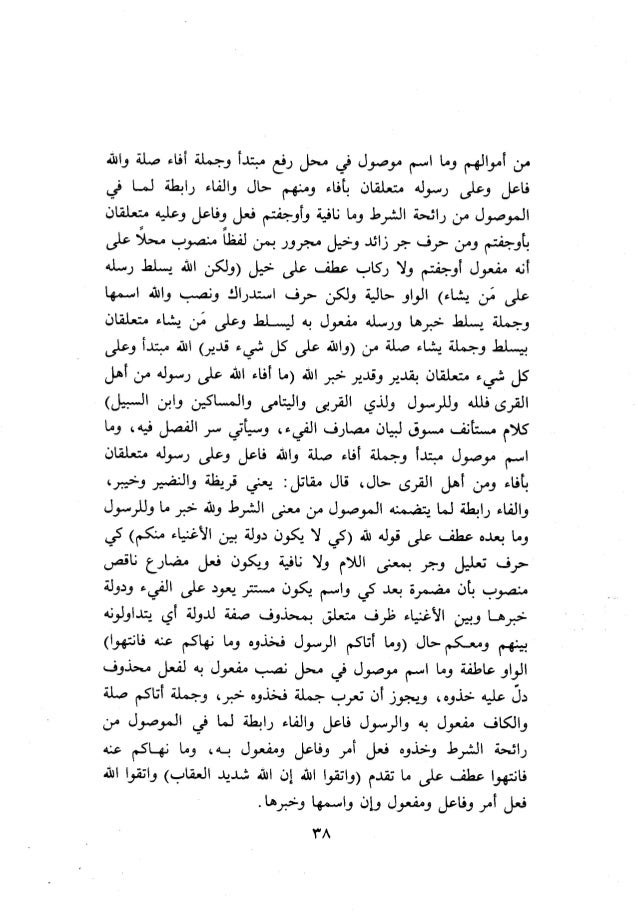 من أموالهم وما اسم موصول في محل رفع مبتدأ وجملة أفاء صلة والله
فاعل وعلى رسوله متعلقان بأفاء ومنهم حال والفاء رابطة لمـا في
الموصول من رائحة الشرط وما نافية وأوجفتم فعل وفاعل وعليه متعلقان
بأوجفتم ومن حرف جر زائد وخيل مجرور بمن لفظاً منصوب محلاً على
أنه مفعول أوجفتم ولا ركاب عطف على خيل (ولكن الله يسلط رسله
على مَن يشاء) الواو حالية ولكن حرف استدراك ونصب والله اسمها
وجملة يسلط خبرها ورسله مفعول به ليسـلط وعلى مَن يشاء متعلقان
بيسلط وجملة يشاء صلة من (والله على كل شيء قدير) الله مبتدأ وعلى
كل شيء متعلقان بقدير وقدير خبر الله (ما أفاء الله على رسوله من أهل
القرى فلله وللرسول ولذي القربى واليتامى والمساكين وابن السبيل)
كلام مستأنف مسوق لبيان مصارف الفيء، وسيأتي سر الفصل فيه، وما
اسم موصول مبتدأ وجملة أفاء صلة والله فاعل وعلى رسوله متعلقان
بأفاء ومن أهل القرى حال، قال مقاتل: يعني قريظة والنضير وخيبر،
والفاء رابطة لما يتضمنه الموصول من معنى الشرط ولله خبر ما وللرسول
وما بعده عطف على قوله لله (كي لا يكون دولة بين الأغنياء منكم) كي
حرف تعليل وجر بمعنى اللام ولا نافية ويكون فعل مضارع ناقص
منصوب بأن مضمرة بعد كي واسم يكون مستتر يعود على الفيء ودولة
خبرهـا وبين الأغنياء ظرف متعلق بمحذوف صفة لدولة أي يتداولونه
بينهم ومعـكم حال (وما أتاكم الرسول فخذوه وما نهاكم عنه فانتهوا)
الواو عاطفة وما اسم موصول في محل نصب مفعول به لفعل محذوف
دلّ عليه خذوه، ويجوز أن تعرب جملة فخذوه خبر، وجملة أتاكم صلة
والكاف مفعول به والرسول فاعل والفاء رابطة لما في الموصول من
رائحة الشرط وخذوه فعل أمر وفاعل ومفعول بـه، وما نهـاكم عنه
فانتهوا عطف على ما تقدم (واتقوا الله إن الله شديد العقاب) واتقوا الله
فعل أمر وفاعل ومفعول وإن واسمها وخبرها.
٣٨